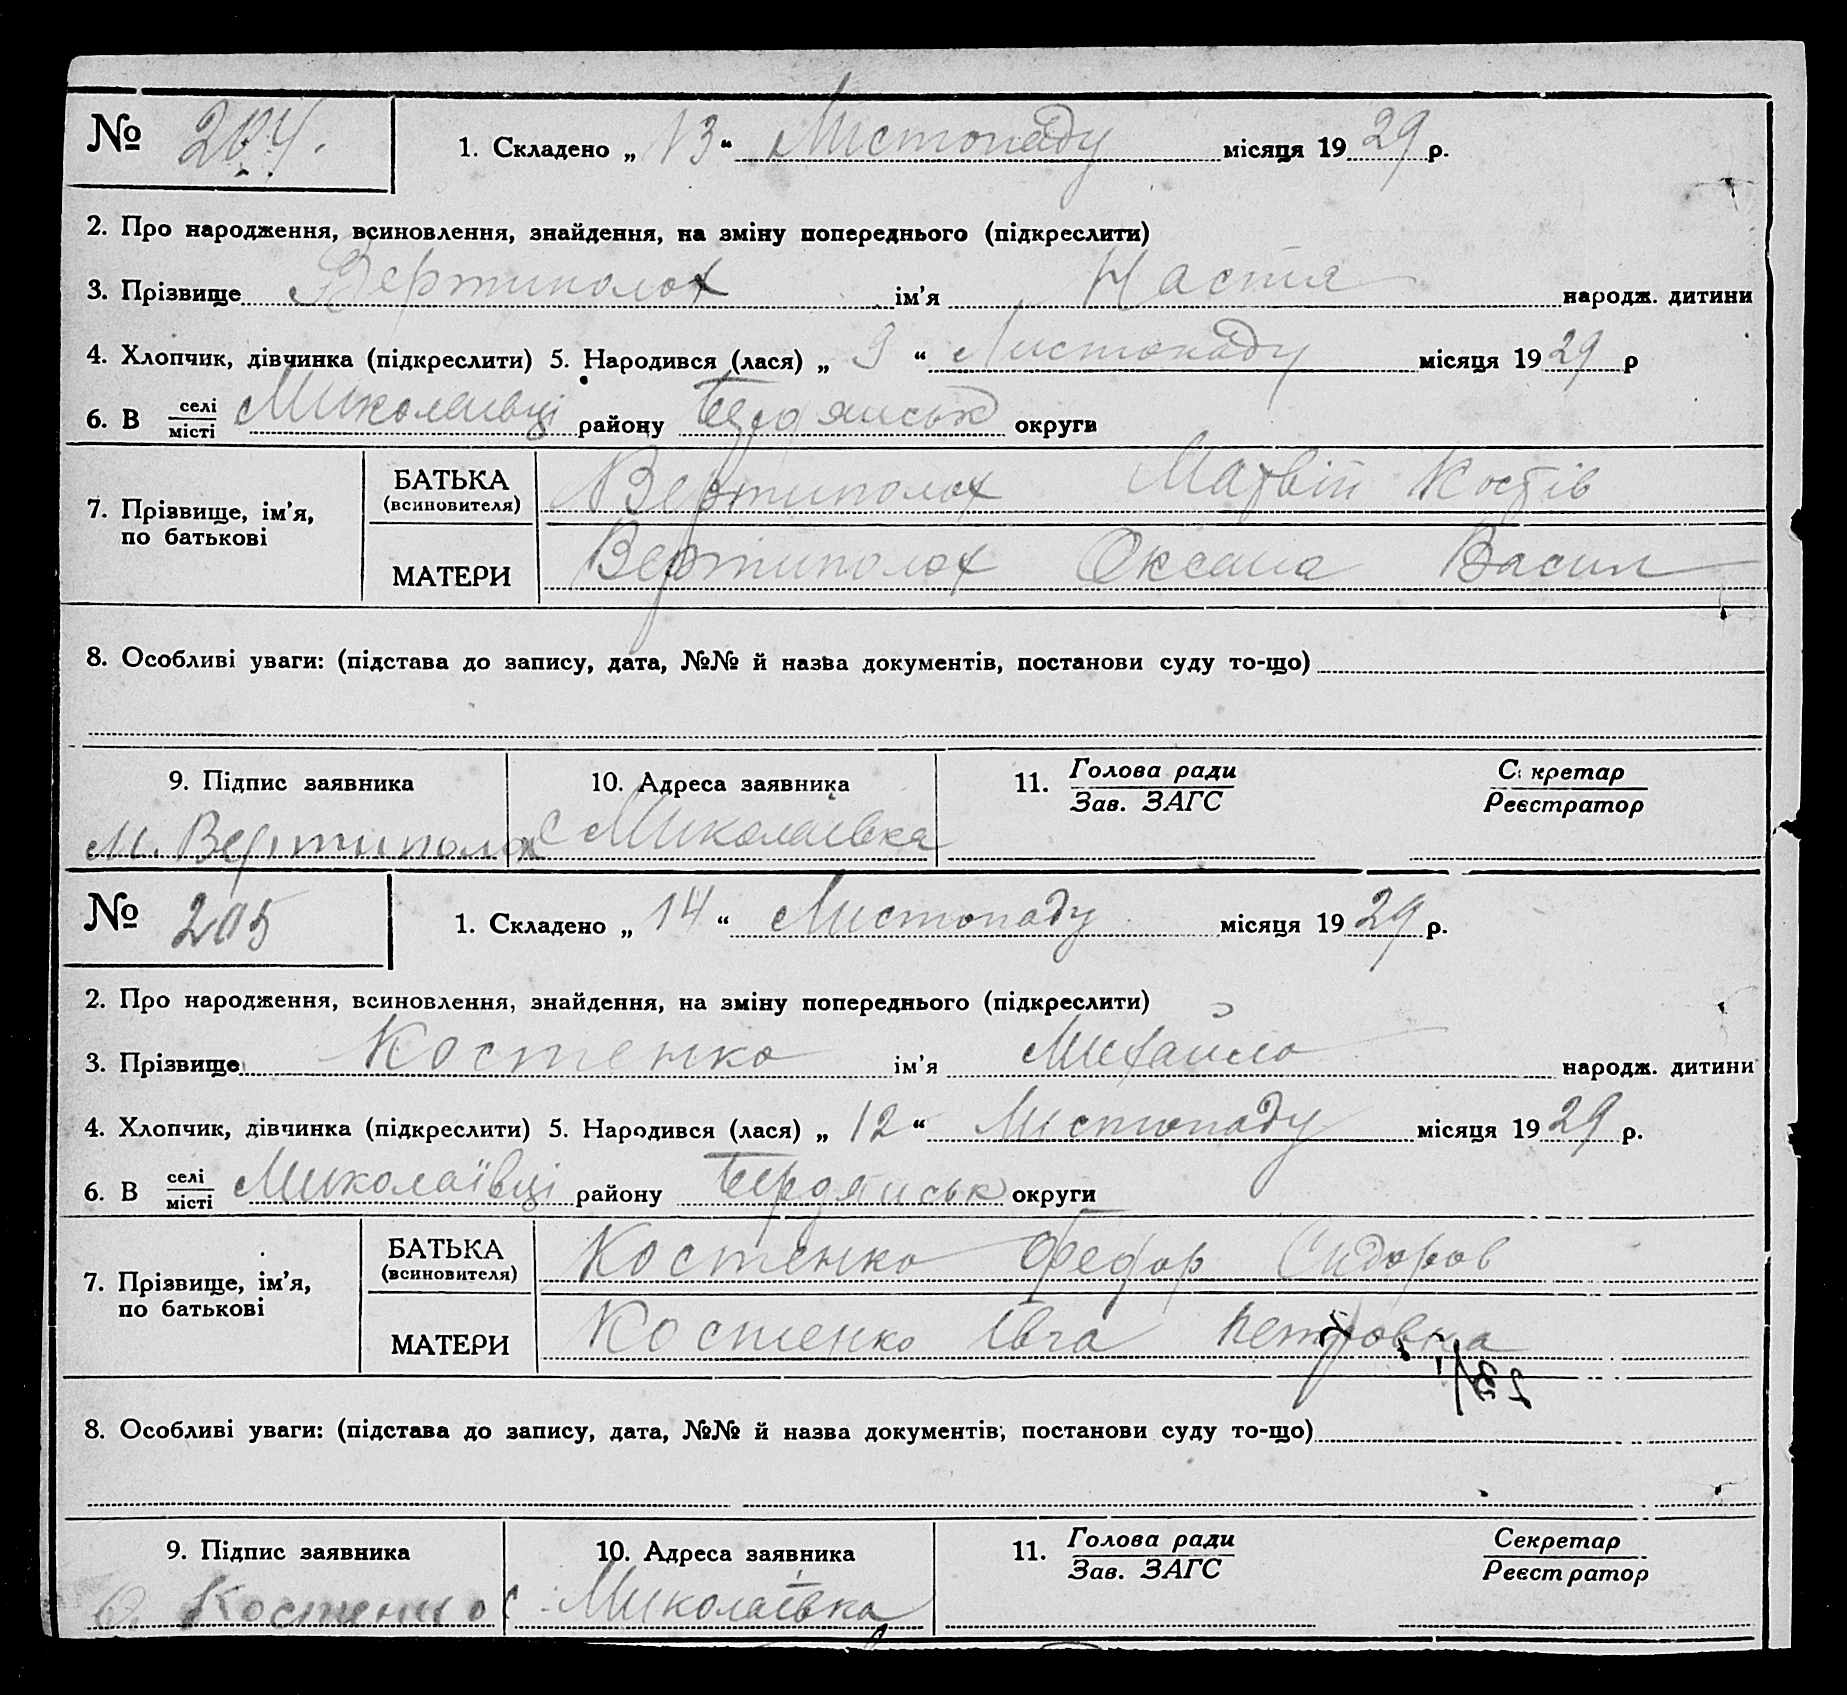 № 204.
1. Складено „ 13 “ Листопаду місяця 1929 р.
2. Про народження, всиновлення, знайдення, на зміну попереднього (підкреслити)
3. Прізвище Вертиполох ім'я Настя народж. дитини
4. Хлопчик, дівчинка (підкреслити) 5. Народився (лася) „ 9 “ Листопаду місяця 1929 р
6. В селі/місті Миколаївці району Бердянськ округи
7. Прізвище, ім'я, по батькові
БАТЬКА (всиновителя) Вертиполох Матвій Костів
МАТЕРИ Вертиполох Оксана Васил
8. Особливі уваги: (підстава до запису, дата, №№ й назва документів, постанови суду то-що)
9. Підпис заявника 10. Адреса заявника 11. Голова ради/Зав. ЗАГС С кретар/Реєстратор
М. Вертиполох с Миколаївка
№ 205
1. Складено „ 14 “ Листопаду місяця 1929 р.
2. Про народження, всиновлення, знайдення, на зміну попереднього (підкреслити)
3. Прізвище Костенко ім'я Михайло народж. дитини
4. Хлопчик, дівчинка (підкреслити) 5. Народився (лася) „ 12 “ Листопаду місяця 1929 р.
6. В селі/місті Миколаївці району Бердянськ округи
7. Прізвище, ім'я, по батькові
БАТЬКА (всиновителя) Костенко Федор Сидоров
МАТЕРИ Костенко Івга Петровна
8. Особливі уваги: (підстава до запису, дата, №№ й назва документів, постанови суду то-що)
9. Підпис заявника 10. Адреса заявника 11. Голова ради/Зав. ЗАГС Секретар/Реєстратор
Костенко с. Миколаївка